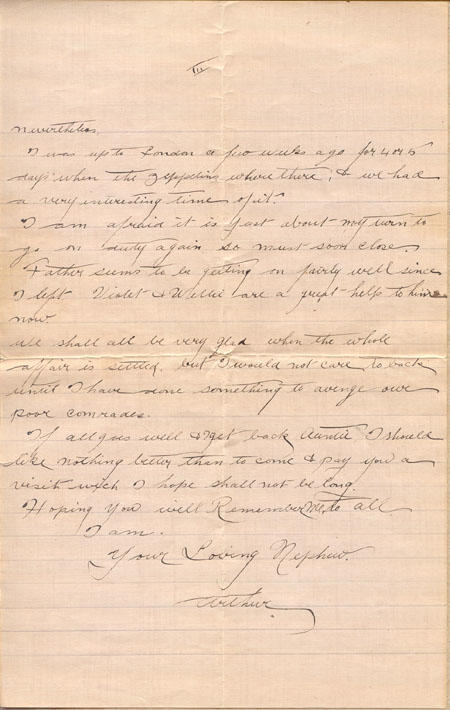 III
Nevertheless.
I was up to London a few weeks ago for 4 or 5
days when the Zeppelins where there, & we had
a very interesting time of it.
I am afraid it is just about my turn to
go on duty again so must soon close
Father seems to be getting on fairly well since
I left Violet & Wellie are a great help to him
now.
We shall all be very glad when the whole
affair is settled, but I would not care to back
until I have done something to avenge our
poor comrades.
If all goes well & I get back Auntie I should
like nothing better than to come & pay you a
visit wich I hope shall not be long
Hoping you will Remember Me to all
I am.
Your Loving Nephew.
Arthur